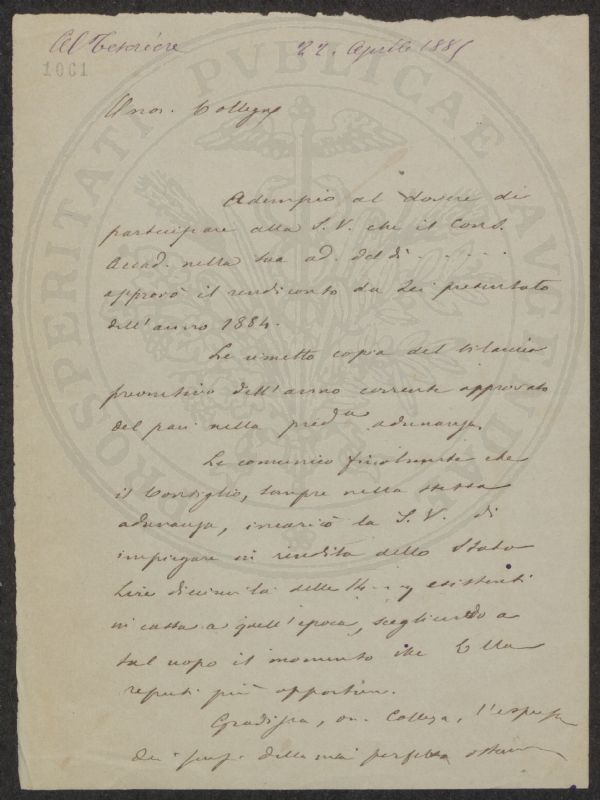 Al Tesoriere 22. Aprile 1885
1061
PROSPERITATI PUBLICAE AUGENDAE
Onor. Collega
Adempio al dovere di
partecipare alla S. V. che il Cons.
Accad. nella sua ad. del dì . . . . .
approvò il rendiconto da Lei presentato
dell'anno 1884.
Le rimetto copia del bilancio
preventivo dell'anno corrente approvato
del pari nella pred.ta adunanza.
Le comunico finalmente che
il Consiglio, sempre nella stessa
adunanza, incaricò la S. V. di
impiegare in rendita dello Stato
Lire diecimila delle 14 esistenti
in cassa a quell'epoca, scegliendo a
tal uopo il momento che Ella
reputi più opportuno.
Gradisca, on. Collega, l'espress
dei sensi della mia perfetta